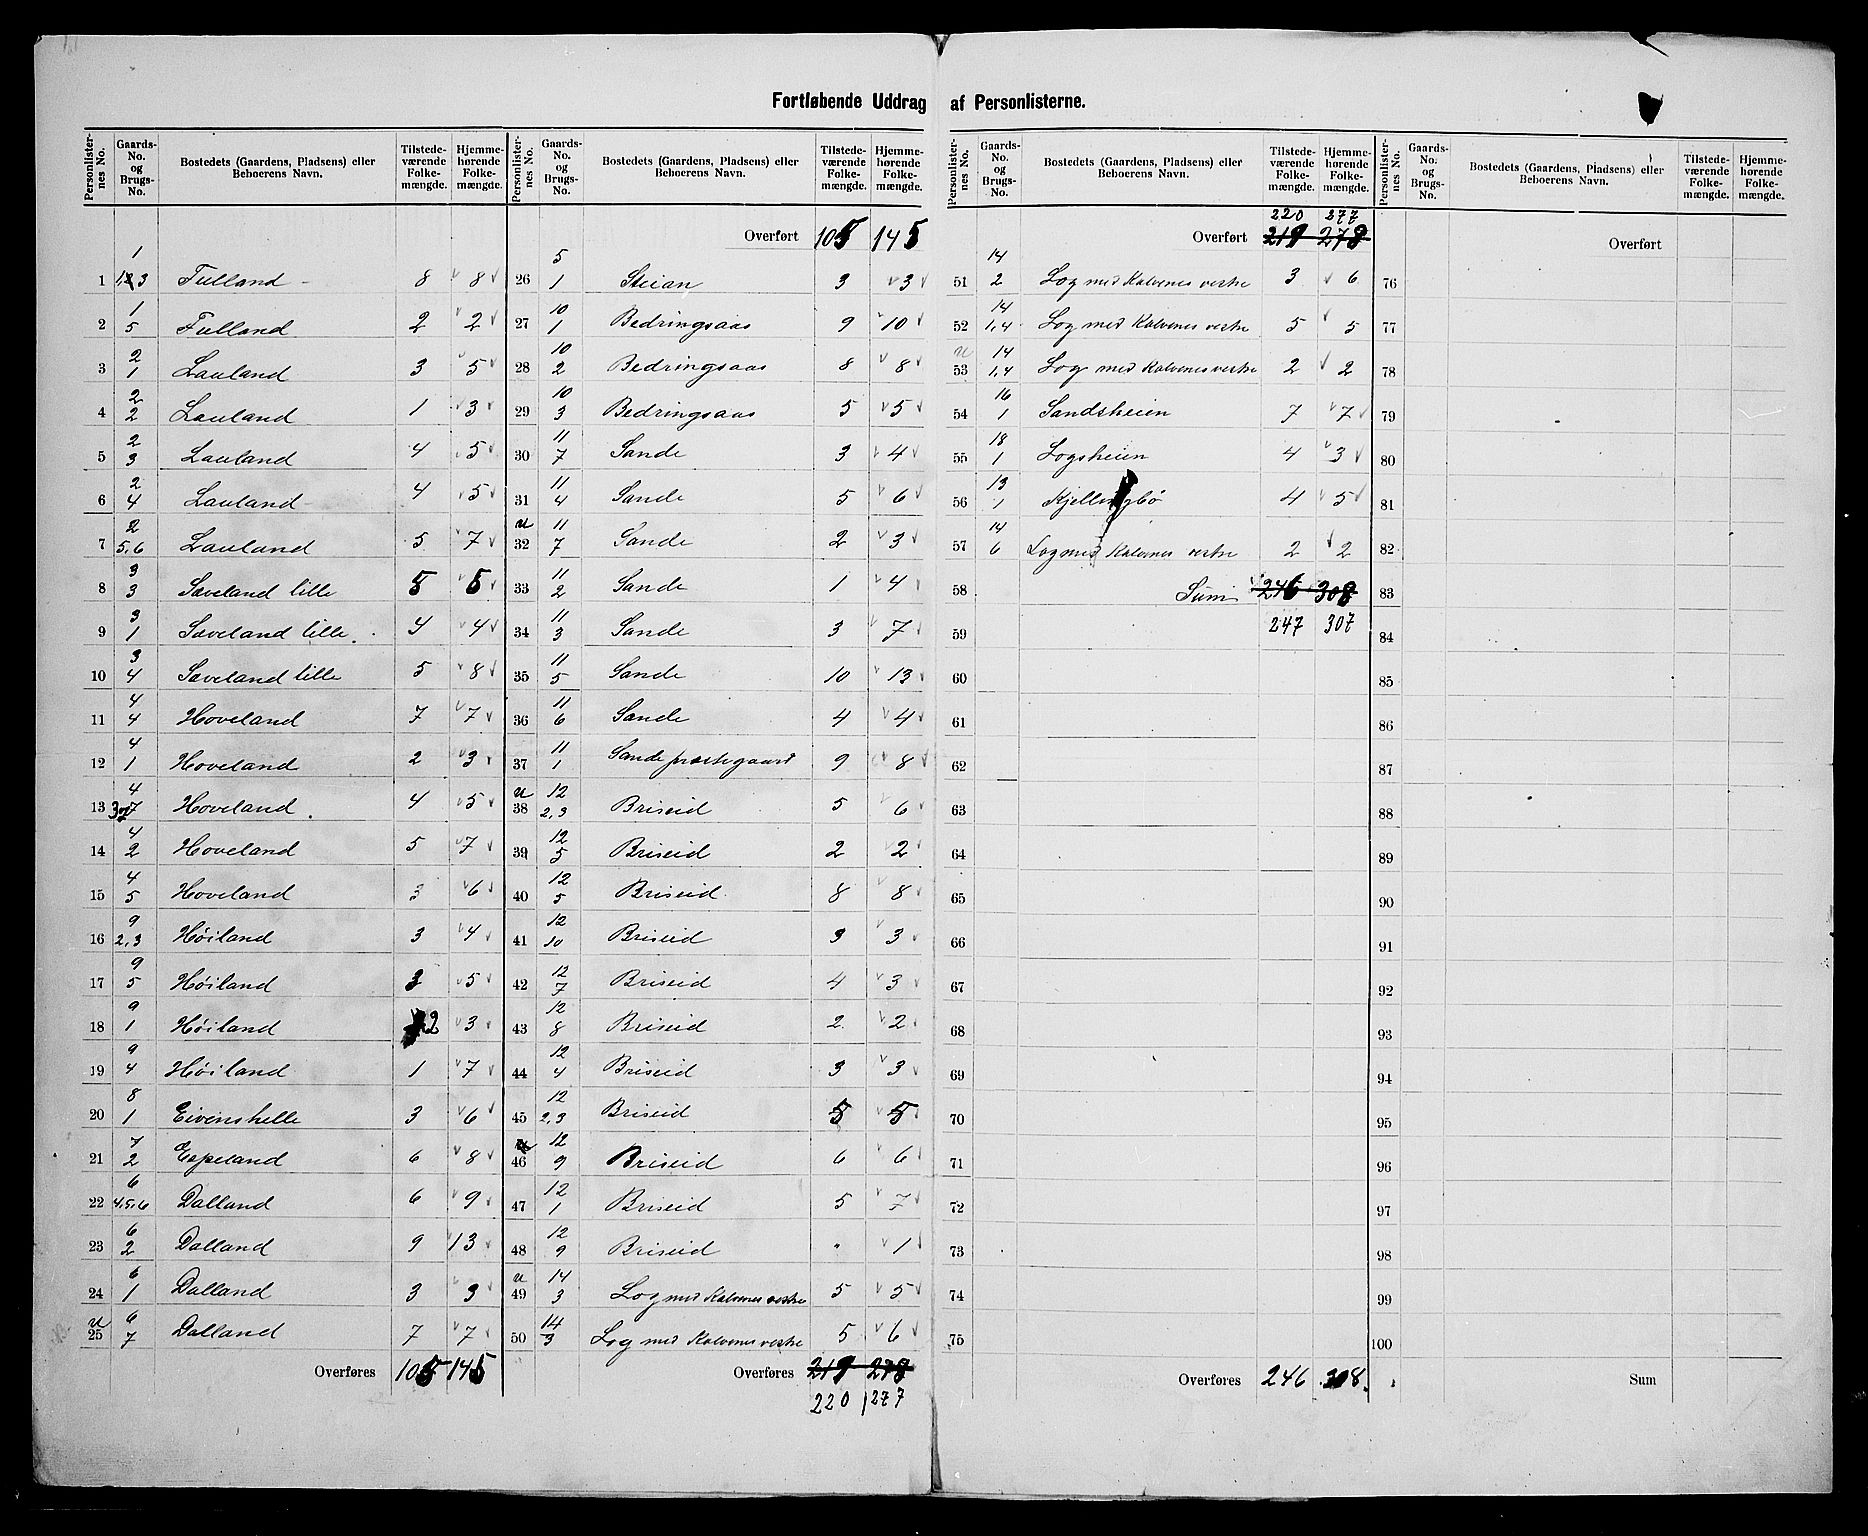 Fortløbende Uddrag af Personlisterne.
Personlister-nes No. | Gaards-No. og Brugs-No. | Bostedets (Gaardens, Pladsens) eller Beboerens Navn. | Tilstede-værende Folke-mængde. | Hjemme-hørende Folke-mængde.
1 | 1 / 1,2,3 | Tulland | 8 | 8
2 | 1 / 5 | Tulland | 2 | 2
3 | 2 / 1 | Lauland | 3 | 5
4 | 2 / 2 | Lauland | 1 | 3
5 | 2 / 3 | Lauland | 4 | 5
6 | 2 / 4 | Lauland | 4 | 5
7 | 2 / 5,6 | Lauland | 5 | 7
8 | 3 / 3 | Sæveland lille | 5 | 5
9 | 3 / 1 | Sæveland lille. | 4 | 4
10 | 3 / 4 | Sæveland lille | 5 | 8
11 | 4 / 4 | Hoveland | 7 | 7
12 | 4 / 1 | Hoveland | 2 | 3
13 | 4 / 3 7 | Hoveland. | 4 | 5
14 | 4 / 2 | Hoveland | 5 | 7
15 | 4 / 5 | Hoveland | 3 | 6
16 | 9 / 2,3 | Høiland | 3 | 4
17 | 9 / 5 | Høiland | 3 | 5
18 | 9 / 1 | Høiland | 2 | 3
19 | 9 / 4 | Høiland | 1 | 7
20 | 8 / 1 | Eivenshelle | 3 | 6
21 | 7 / 2 | Espeland | 6 | 8
22 | 6 / 4,5,6 | Dalland | 6 | 9
23 | 6 / 2 | Dalland | 9 | 13
24 | 6 / 1 | Dalland | 3 | 3
u 25 | 6 / 7 | Dalland | 7 | 7
Overføres 105 145
Personlister-nes No. | Gaards-No. og Brugs-No. | Bostedets (Gaardens, Pladsens) eller Beboerens Navn. | Tilstede-værende Folke-mængde. | Hjemme-hørende Folke-mængde.
Overført 105 145
26 | 5 / 1 | Steian | 3 | 3
27 | 10 / 1 | Bedringsaas | 9 | 10
28 | 10 / 2 | Bedringsaas | 8 | 8
29 | 10 / 3 | Bedringsaas | 5 | 5
30 | 11 / 7 | Sande | 3 | 4
31 | 11 / 4 | Sande | 5 | 6
u 32 | 11 / 7 | Sande | 2 | 3
33 | 11 / 2 | Sande | 1 | 4
34 | 11 / 3 | Sande | 3 | 7
35 | 11 / 5 | Sande | 10 | 13
36 | 11 / 6 | Sande | 4 | 4
37 | 11 / 1 | Sande præstegaard | 9 | 8
u 38 | 12 / 2,3 | Briseid | 5 | 6
39 | 12 / 5 | Briseid | 2 | 2
40 | 12 / 5 | Briseid | 8 | 8
41 | 12 / 10 | Briseid | 3 | 3
42 | 12 / 7 | Briseid | 4 | 3
43 | 12 / 8 | Briseid | 2 | 2
44 | 12 / 4 | Briseid | 3 | 3
45 | 12 / 2,3 | Briseid | 5 | 5
u 46 | 12 / 9 | Briseid | 6 | 6
47 | 12 / 1 | Briseid | 5 | 7
48 | 12 / 9 | Briseid | " | 1
u 49 | 14 / 3 | Log med Kalvenes vestre | 5 | 5
50 | 14 / 3 | Log med Kalvenes vestre | 5 | 6
Overføres 219 278
220 277
Personlister-nes No. | Gaards-No. og Brugs-No. | Bostedets (Gaardens, Pladsens) eller Beboerens Navn. | Tilstede-værende Folke-mængde. | Hjemme-hørende Folke-mængde.
220 277
Overført 219 278
51 | 14 / 2 | Log med Kalvenes vestre | 3 | 6
52 | 14 / 1,4 | Log med Kalvenes vestre | 5 | 5
u 53 | 14 / 1,4 | Log med Kalvenes vestre | 2 | 2
54 | 16 / 1 | Sandsheien | 7 | 7
55 | 18 / 1 | Logsheien | 4 | 3
56 | 13 / 1 | Kjellingbø | 4 | 5
57 | 14 / 6 | Log med Kalvenes vestre | 2 | 2
58 | Sum | 246 | 308
59 | 247 | 307
60
61
62
63
64
65
66
67
68
69
70
71
72
73
74
75
Overføres 246 308.
Personlister-nes No. | Gaards-No. og Brugs-No. | Bostedets (Gaardens, Pladsens) eller Beboerens Navn. | Tilstede-værende Folke-mængde. | Hjemme-hørende Folke-mængde.
Overført
76
77
78
79
80
81
82
83
84
85
86
87
88
89
90
91
92
93
94
95
96
97
98
99
100
Sum